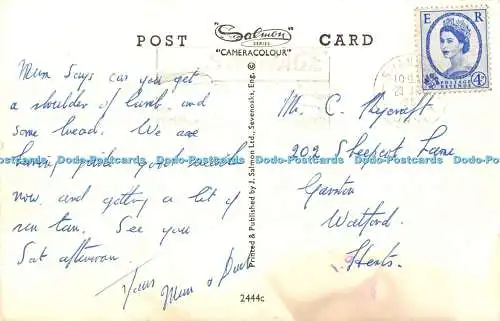 POST "Salmon" CARD
SERIES
"CAMERACOLOUR"
E R
POSTAGE 4D
REVENUE
Mum says can you get
a shoulder of lamb, and
some bread. We are
having quite good weather
now, and getting a bit of
sun tan. See you
Sat afternoon.
Yours Mum &
Mr. C. Rycroft
202 Sheepcot Lane
Garston
Watford
Herts.
Dodo-Postcards Dodo-Postcards Dodo-Postcards Dodo-Postcards Dodo-Postcards Dodo-Postcards
Printed & Published by J. Salmon Ltd., Sevenoaks, Eng. ©
2444c